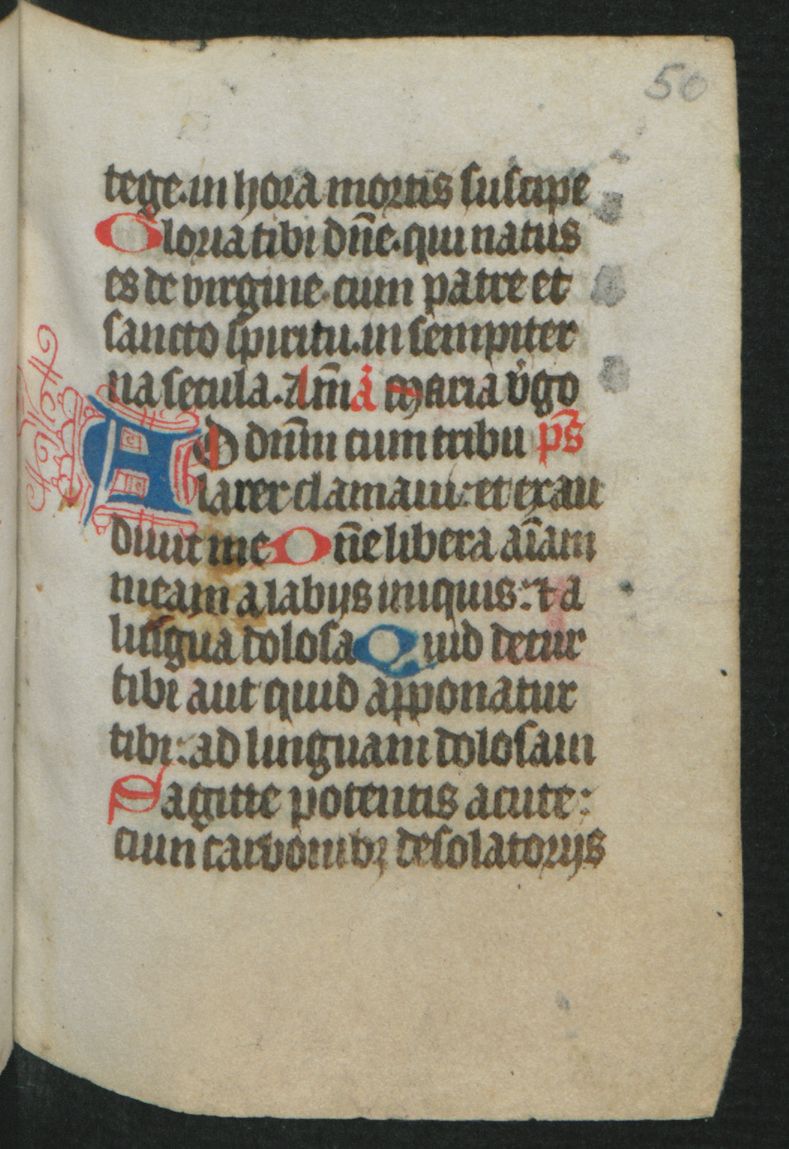 50
tege.in hora mortis suscipe
Gloria tibi dn̄e.qui natus
es de virgine.cum patre et
sancto spiritu.in sempiter
na secula.Am̄ an̄ Maria v̄go
AD dn̄m cum tribu ps̄
larer clamaui:et exau
diuit me Dn̄e libera aīam
meam a labijs iniquis:⁊ a
lingua dolosa Quid detur
tibi aut quid apponatur
tibi:ad linguam dolosam
Sagitte potentis acute:
cum carbonibꝫ desolatorijs